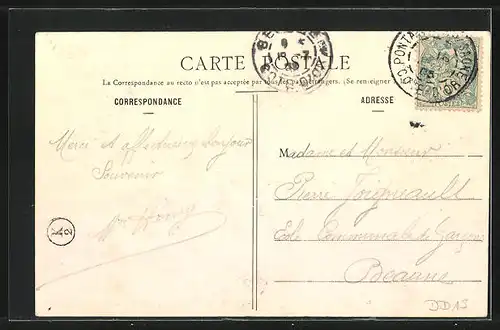 CARTE POSTALE
La Correspondance au recto n'est pas acceptée par tous les pays étrangers. (Se renseigner
CORRESPONDANCE
ADRESSE
Merci et affectueux bonjour
Souvenir
Madame et Monsieur
Pierre
Ecole Communale de Garçons
Beaune
K
2
DD13